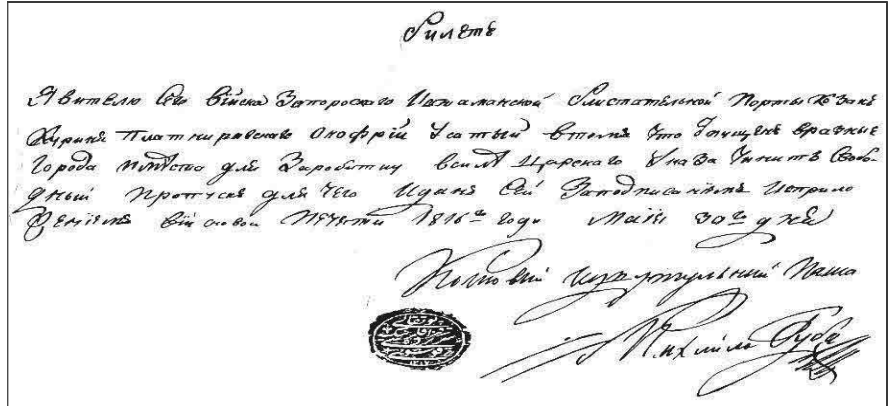 Билетъ
Явителю Сего Війска Запороскаго Иатаманской блистательной Порты козакъ
Куриня Платнировскаго Онофрій Усатый втомъ что Допущенъ вразные
Города мѣста для Заработку Всилѣ Царскаго Указа Чинить Свобо-
дный пропускъ для чего Иданъ Сей Заподписаніемъ Исприло
женіемъ Війсковой Печати 1816го году Маія 30го дня
Кошовій
Паша
Михайло Губа